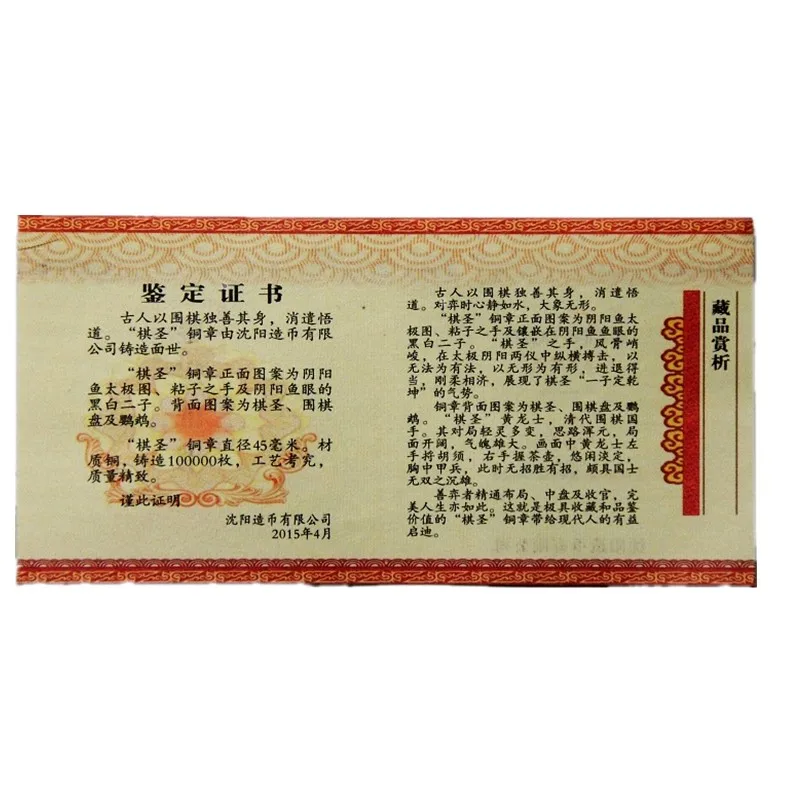 鉴定证书
古人以围棋独善其身，消遣悟
道。“棋圣”铜章由沈阳造币有限
公司铸造面世。
“棋圣”铜章正面图案为阴阳
鱼太极图、粘子之手及阴阳鱼眼的
黑白二子。背面图案为棋圣、围棋
盘及鹏鹉。
“棋圣”铜章直径45毫米。材
质铜，铸造100000枚，工艺考究，
质量精致。
谨此证明
沈阳造币有限公司
2015年4月
古人以围棋独善其身，消遣悟
道。对弈时心静如水，大象无形。
“棋圣”铜章正面图案为阴阳鱼太
极图、粘子之手及镶嵌在阴阳鱼鱼眼的
黑白二子。“棋圣”之手，风骨峭
峻，在太极阴阳两仪中纵横搏击，以
无法为有法，以无形为有形，进退得
当，刚柔相济，展现了棋圣“一子定乾
坤”的气势。
铜章背面图案为棋圣、围棋盘及鹏
鹉。“棋圣”黄龙士，清代围棋国
手。其对局轻灵多变，思路浑元，局
面开阔，气魄雄大。画面中黄龙士左
手捋胡须，右手握茶壶，悠闲淡定，
胸中甲兵，此时无招胜有招，颇具国士
无双之沉雄。
善弈者精通布局、中盘及收官，完
美人生亦如此。这就是极具收藏和品鉴
价值的“棋圣”铜章带给现代人的有益
启迪。
藏品赏析